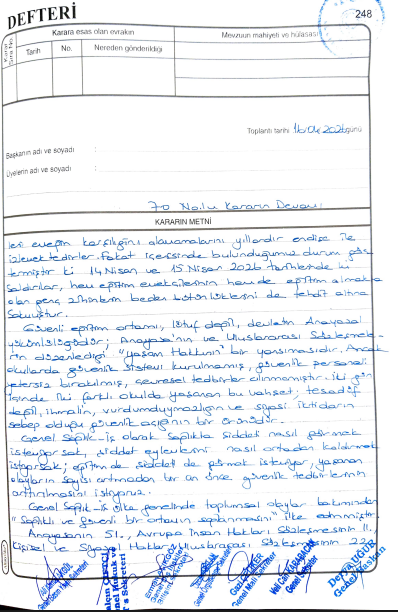 DEFTERİ
248
Karar Sıra No.
Karara esas olan evrakın
Mevzuun mahiyeti ve hülasası
Tarih No. Nereden gönderildiği
Toplantı tarihi 16.04.2026 günü
Başkanın adı ve soyadı :
Üyelerin adı ve soyadı :
70 No.lu Kararın Devamı
KARARIN METNİ
leri emeğin karşılığını alamamalarını yıllardır endişe ile
izlemektedirler. Fakat içerisinde bulunduğumuz durum gös
termiştir ki 14 Nisan ve 15 Nisan 2026 tarihlerinde ki
saldırılar, hem eğitim emekçilerinin hemde eğitim almakta
olan genç zihinlerin beden bütünlüklerini de tehdit altına
sokmuştur.
Güvenli eğitim ortamı, lütuf değil, devletin Anayasal
yükümlülüğüdür; Anayasa'nın ve Uluslararası Sözleşmele-
rin düzenlediği "yaşam Hakkının" bir yansımasıdır. Ancak
okullarda güvenlik sistemi kurulmamış, güvenlik personeli
yetersiz bırakılmış, çevresel tedbirler alınmamıştır. İki gün
içinde iki farklı okulda yaşanan bu vahşet; tesadüf
değil, ihmalin, vurdumduymazlığın ve siyasi iktidarın
sebep olduğu güvenlik açığının bir ürünüdür.
Genel Sağlık-İş olarak sağlıkta şiddeti nasıl görmek
istemiyorsak, şiddet eylemlerini nasıl ortadan kaldırmak
istiyorsak; eğitimde şiddeti de görmek istemiyor, yaşanan
olayların sayısı artmadan bir an önce güvenlik tedbirlerinin
arttırılmasını istiyoruz.
Genel Sağlık-İş ülke genelinde toplumsal olaylar bakımından
"Sağlıklı ve güvenli bir ortamın sağlanmasını" ilke edinmiştir.
Anayasanın 51., Avrupa İnsan Hakları Sözleşmesinin 11.
Kişisel ve Siyasi Haklar Uluslararası Sözleşmesinin 22.
Derya UĞUR
Genel Başkan